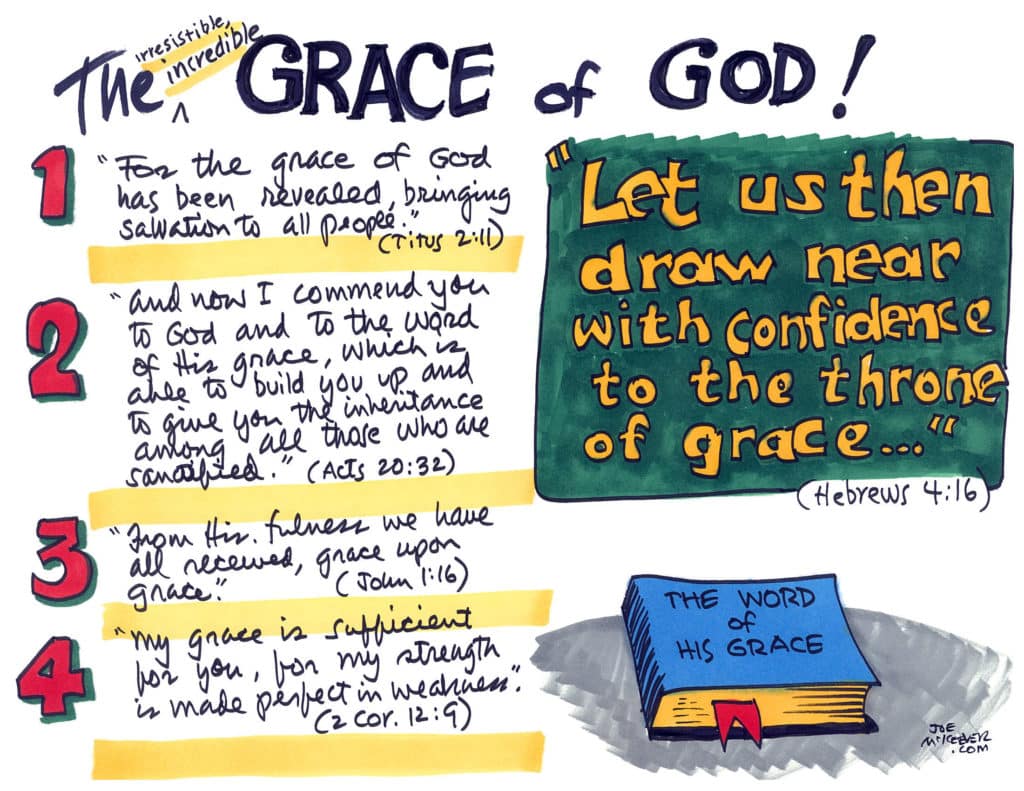 The irresistible, incredible GRACE of GOD!
1
"For the grace of God
has been revealed, bringing
salvation to all people."
(Titus 2:11)
2
"and now I commend you
to God and to the word
of His grace, which is
able to build you up and
to give you the inheritance
among all those who are
sanctified." (Acts 20:32)
3
"From His. fulness we have
all received, grace upon
grace."
(John 1:16)
4
"my grace is sufficient
for you, for my strength
is made perfect in weakness."
(2 Cor. 12:9)
"Let us then
draw near
with confidence
to the throne
of grace..."
(Hebrews 4:16)
THE WORD
of
HIS GRACE
JOE
McKEEVER
.COM